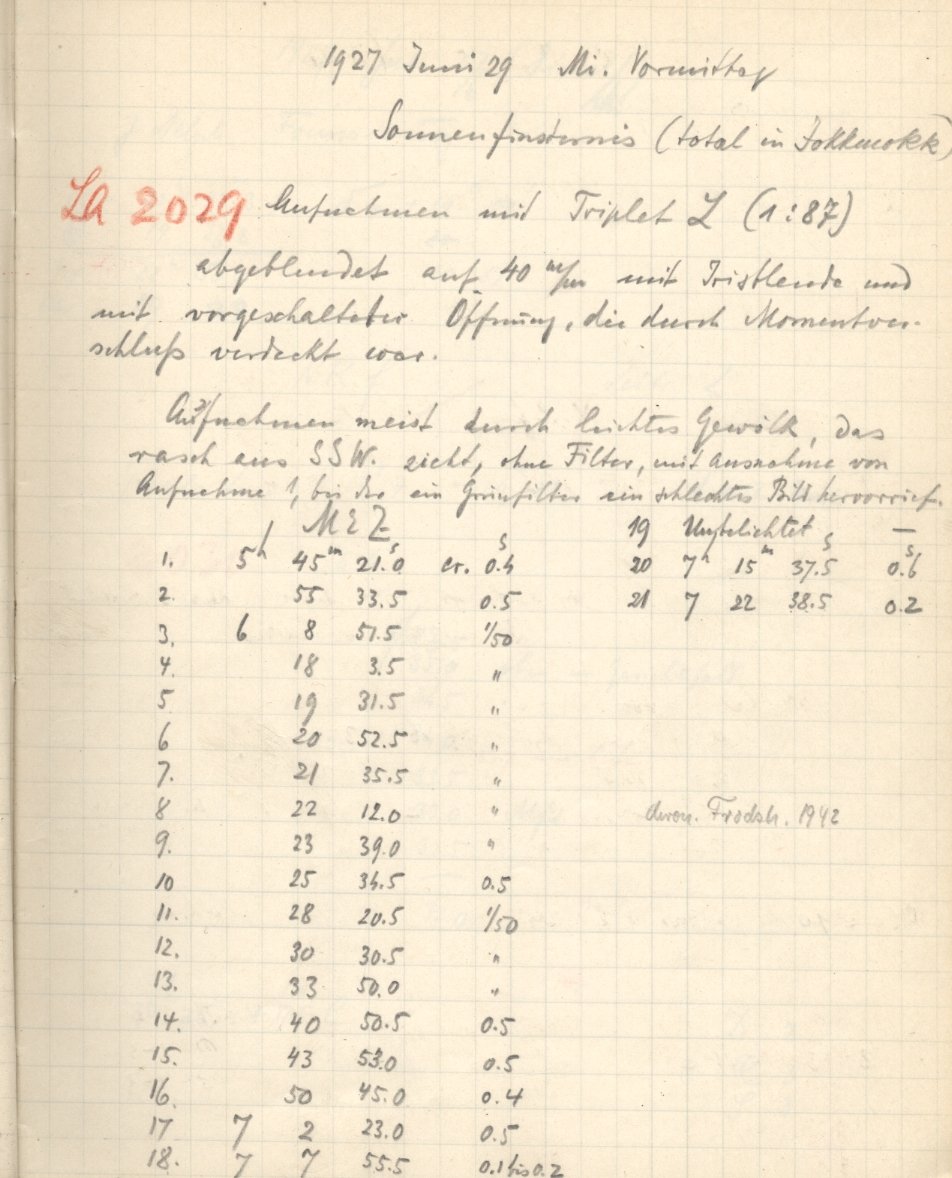 1927 Juni 29 Mi. Vormittag
Sonnenfinsternis (total in Jokkmokk)
La 2029 Aufnahmen mit Triplet L (1:87)
abgeblendet auf 40 m/m mit Irisblende und
mit vorgeschalteter Öffnung, die durch Momentver-
schluß verdeckt war.
Aufnahmen meist durch leichtes Gewölk, das
rasch aus SSW. zieht, ohne Filter, mit Ausnahme von
Aufnahme 1, bei der ein Grünfilter ein schlechtes Bild hervorrief.
MEZ
1. 5h 45m 21.0s ca. 0.4s
2. 55 33.5 0.5
3. 6 8 51.5 1/50
4. 18 3.5 "
5 19 31.5 "
6 20 52.5 "
7. 21 35.5 "
8 22 12.0 "
9. 23 39.0 "
10 25 34.5 0.5
11. 28 20.5 1/50
12. 30 30.5 "
13. 33 50.0 "
14. 40 50.5 0.5
15. 43 53.0 0.5
16. 50 45.0 0.4
17 7 2 23.0 0.5
18. 7 7 55.5 0.1 bis 0.2
19 Unbelichtet —
20 7h 15m 37.5s 0.6s
21 7 22 38.5 0.2
Frodsh. 1942